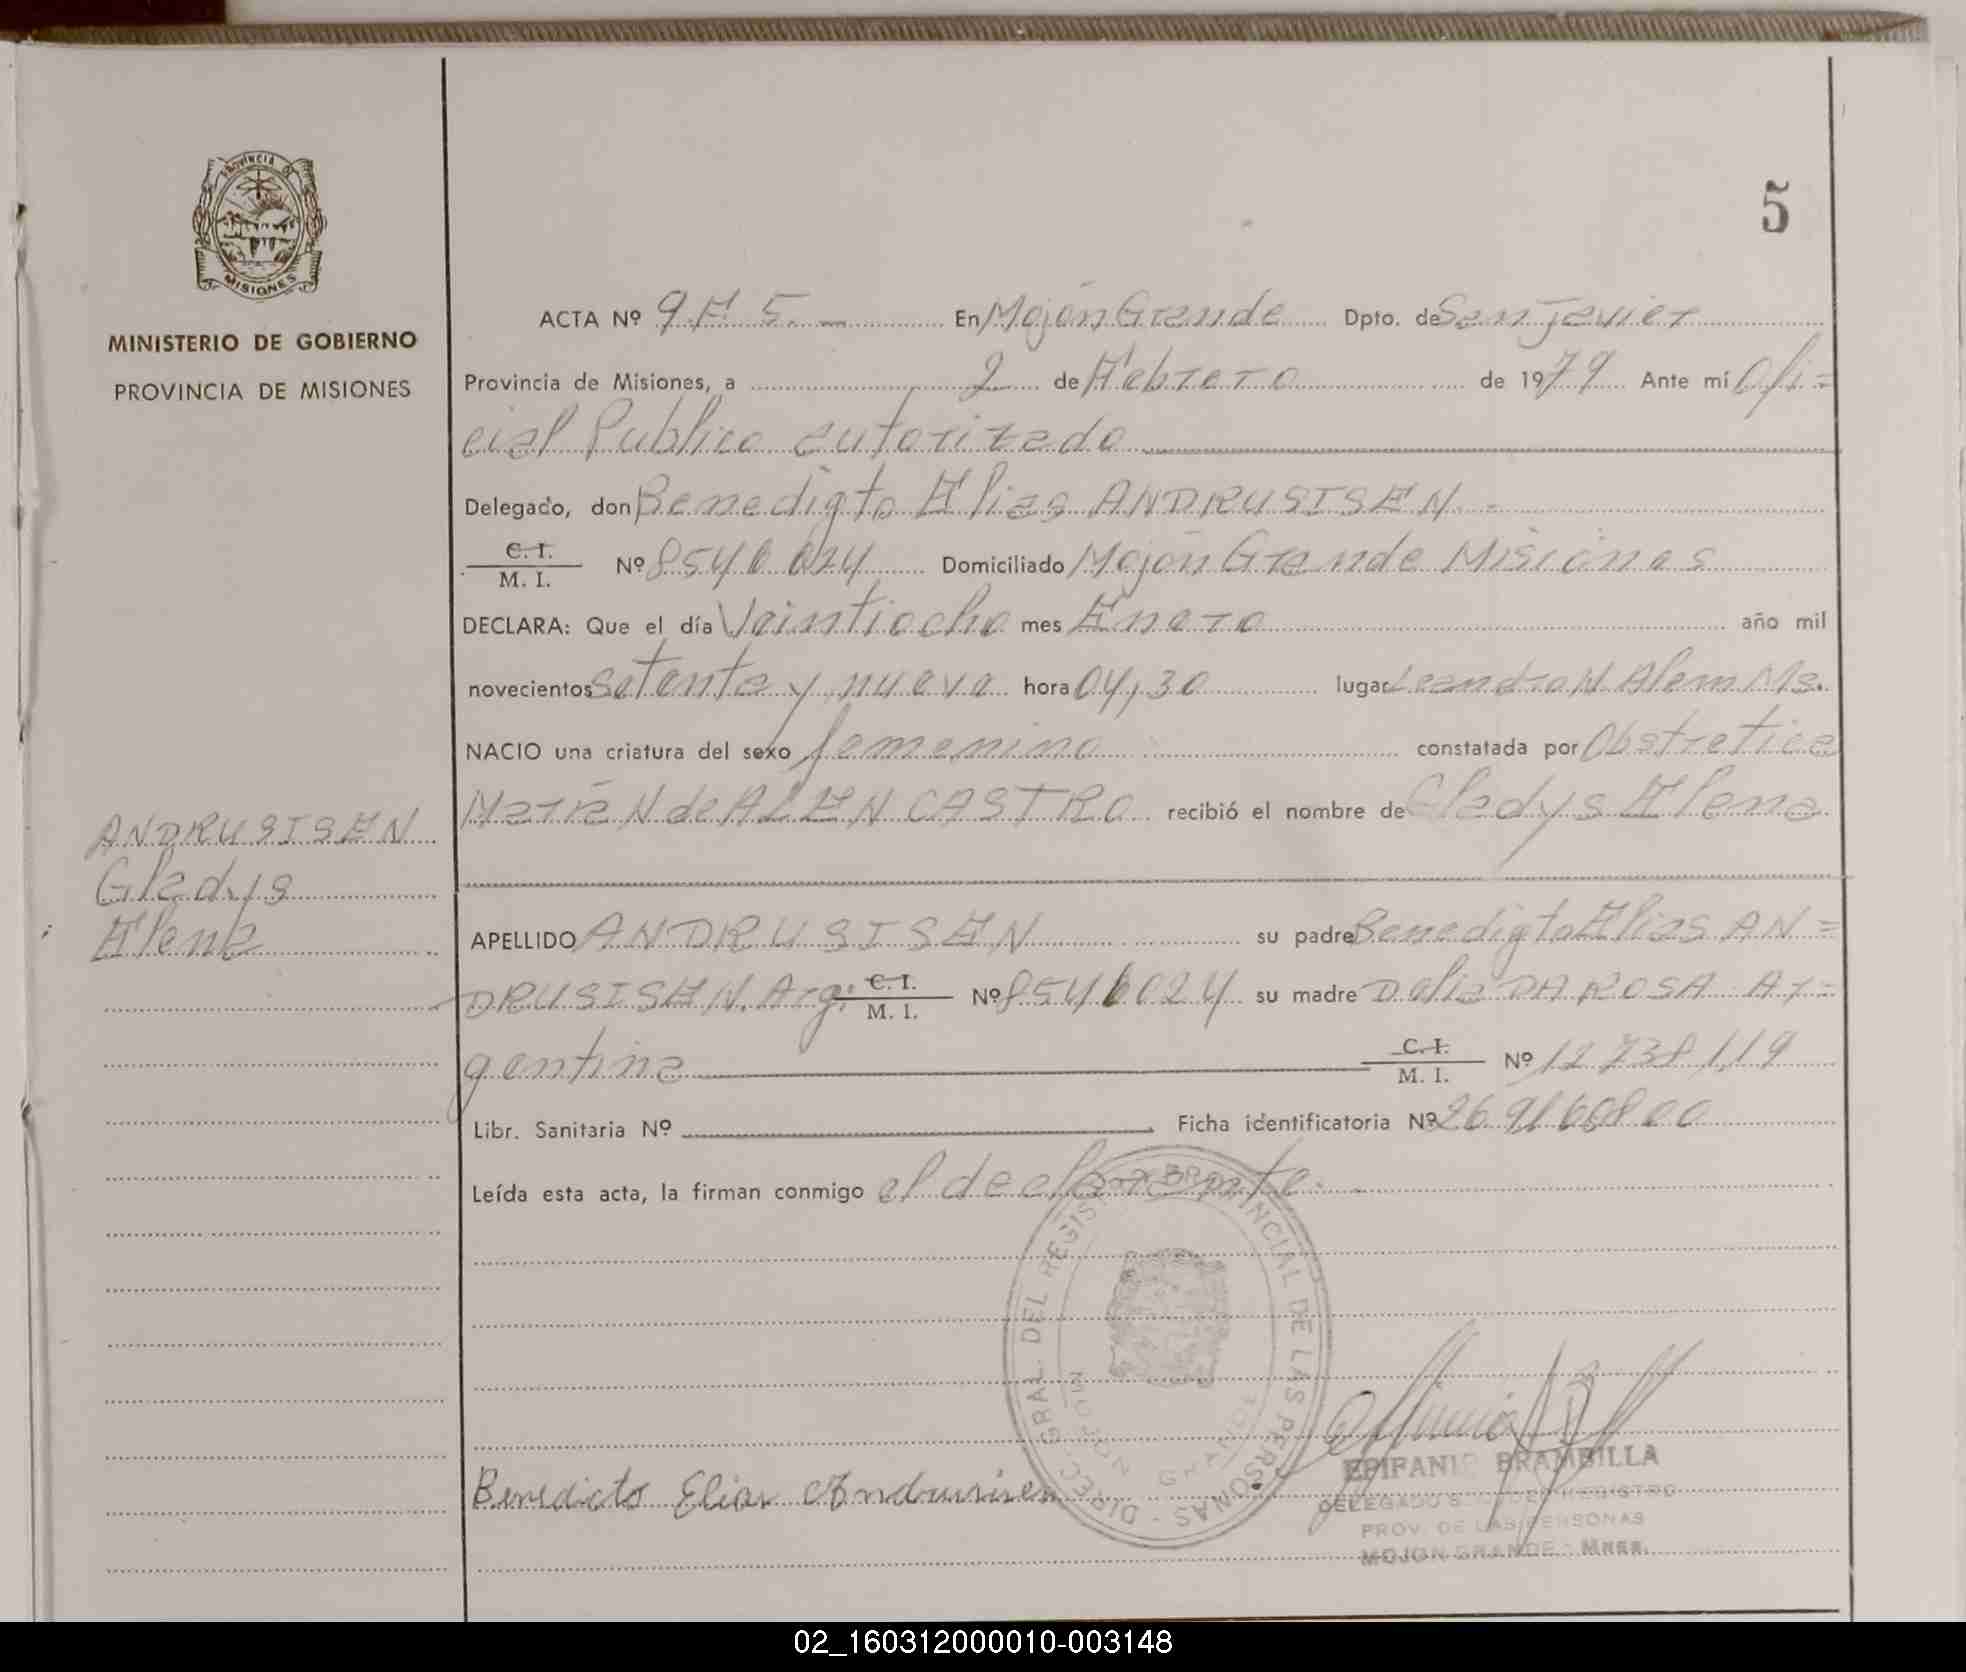 5
PROVINCIA DE
MISIONES
MINISTERIO DE GOBIERNO
PROVINCIA DE MISIONES
ANDRUSISEN
Gladys
Elena
ACTA Nº 9.F 5. En Mojón Grande Dpto. de San Javier
Provincia de Misiones, a 2 de Febrero de 1979 Ante mí Ofi=
cial Publico autorizado
Delegado, don Benedigto Elias ANDRUSISEN.
C. I.
M. I. Nº 8546024 Domiciliado Mojón Grande Misiones
DECLARA: Que el día Veintiocho mes Enero año mil
novecientos setenta y nueve hora 04,30 lugar Leandro N. Alem Ms.
NACIO una criatura del sexo femenino constatada por Obstretica
María N de ALEN CASTRO recibió el nombre de Gladys Elena
APELLIDO ANDRUSISEN su padre Benedigto Elias AN=
DRUSISEN. Arg: C. I. M. I. Nº 8546024 su madre Delia DA ROSA Ar=
gentina C. I. M. I. Nº 12 738 119
Libr. Sanitaria Nº Ficha identificatoria Nº 26 9160800
Leída esta acta, la firman conmigo el declarante.
DIREC. GRAL. DEL REGISTRO PROVINCIAL DE LAS PERSONAS
MOJON GRANDE
Benedicto Elias Andrusisen
EPIFANIO BRAMBILLA
DELEGADO DEL REGISTRO
PROV. DE LAS PERSONAS
MOJON GRANDE - Mnes.
02_160312000010-003148